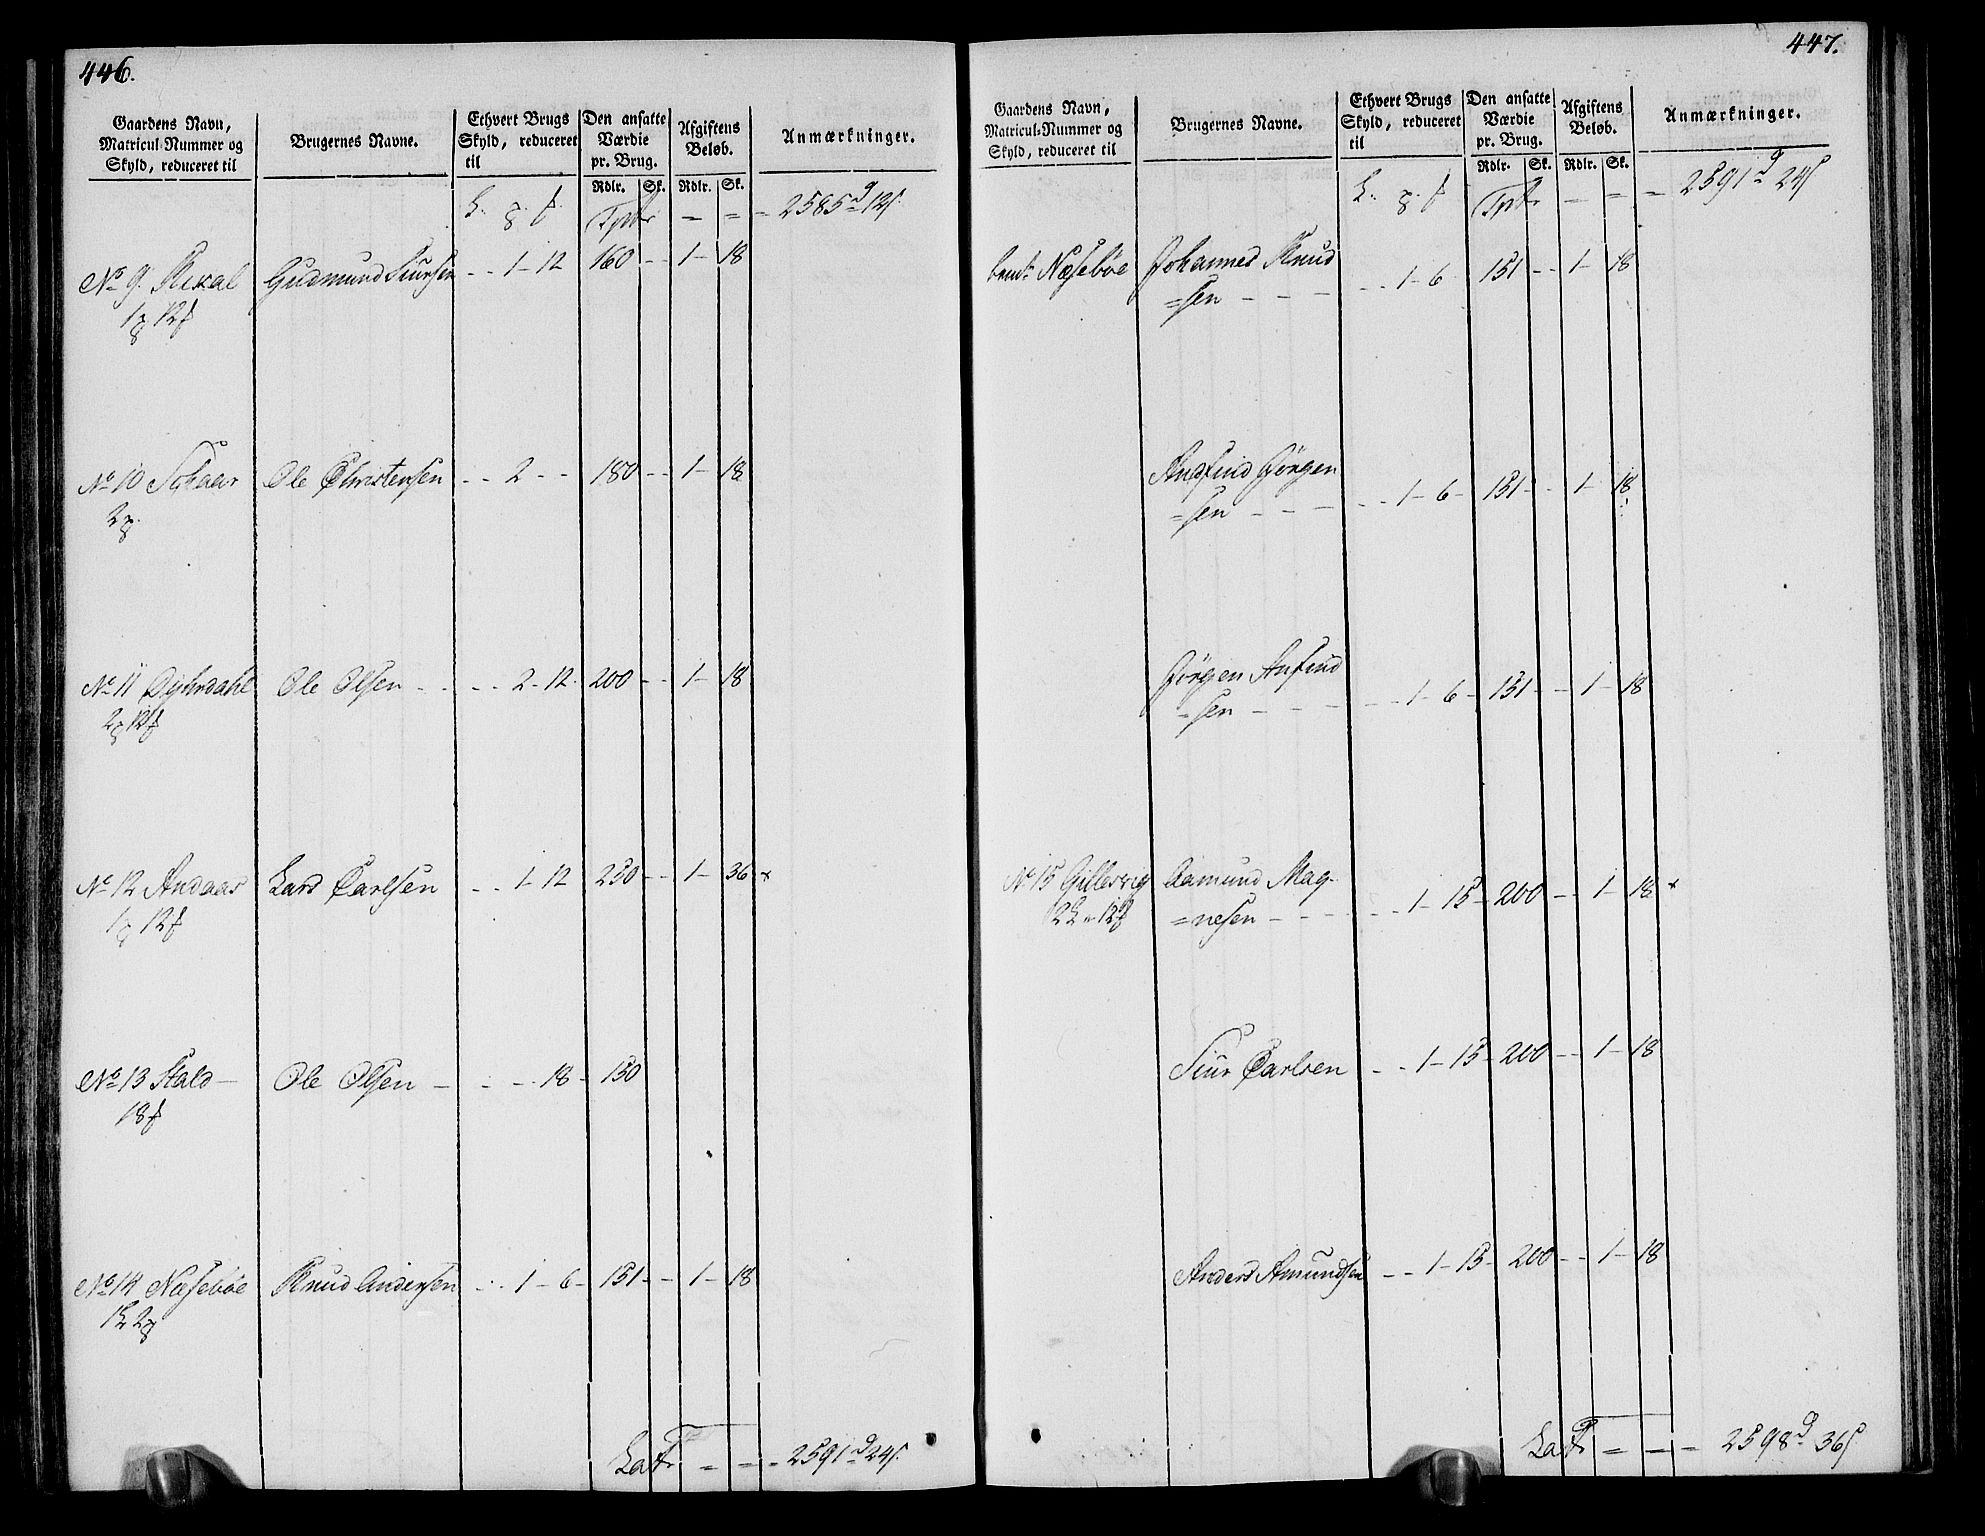 446.
Gaardens Navn, Matricul-Nummer og Skyld, reduceret til
Brugernes Navne.
Ethvert Brugs Skyld, reduceret til
Den ansatte Værdie pr. Brug.
Afgiftens Beløb.
Anmærkninger.
Rdlr. Sk. Rdlr. Sk.
Tptr - = - 2585 d 12 s.
No 9. Rexal Gudmund Siursen - - 1 - 12 160 - - 1 - 18
1 12
No 10 Schaar Ole Christensen - - 2 - - 180 - - 1 - 18
2
No 11 Dyhrdahl Ole Olsen - - - - 2 - 12 200 - - 1 - 18
2 12
No 12 Andaas Lars Carlsen - - 1 - 12 250 - - 1 - 36 x
1 12
No 13 Stald - Ole Olsen - - - - 18 - 150
18
No 14 Næsebøe Knud Andersen - - 1 - 6 - 151 - - 1 - 18
1 2
Latr = = - 2591 d 24 s.
447.
Gaardens Navn, Matricul-Nummer og Skyld, reduceret til
Brugernes Navne.
Ethvert Brugs Skyld, reduceret til
Den ansatte Værdie pr. Brug.
Afgiftens Beløb.
Anmærkninger.
Rdlr. Sk. Rdlr. Sk.
Tptr - = - 2591 d 24 s
Næsebøe Johannes Knud
=sen - - - - - 1 - 6 151 - - 1 - 18
Anfind Jørgen
=sen - - - - - 1 - 6 - 151 - - 1 - 18
Jørgen Anfind
=sen - - - - - 1 - 6 - 151 - - 1 - 18
No 15 Gillesvig Aamund Mag-
2 12 =nesen - - - - - 1 - 15 - 200 - - 1 - 18 x
Siur Carlsen - - 1 - 15 - 200 - - 1 - 18
Anders Amundsen - - 1 - 15 - 200 - - 1 - 18
Latr = - - 2598 d 36 s